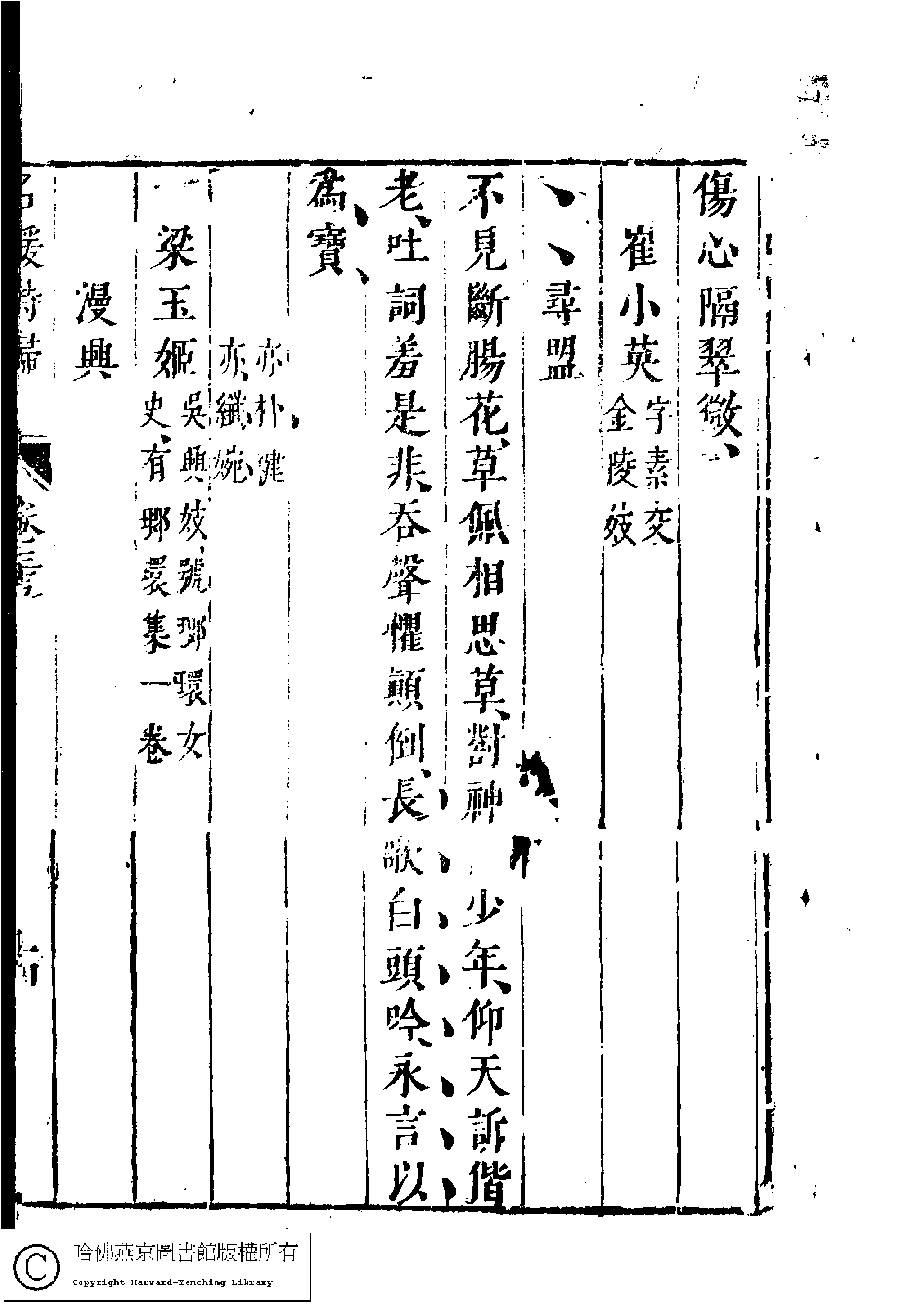 傷心隔翠微、
崔小英 字素交
金陵妓
尋盟
不見斷腸花、草佩相思草、對神 少年、仰天訴偕
老、吐詞羞是非、吞聲懼顛倒、長歌白頭吟、永言以
爲寶、
亦朴、健
亦、纖、婉
梁玉姬 吳興妓、號瑯環女
史、有瑯環集一卷
漫興
名媛詩歸
卷三
哈佛燕京圖書館版權所有
Copyright Harvard-Yenching Library